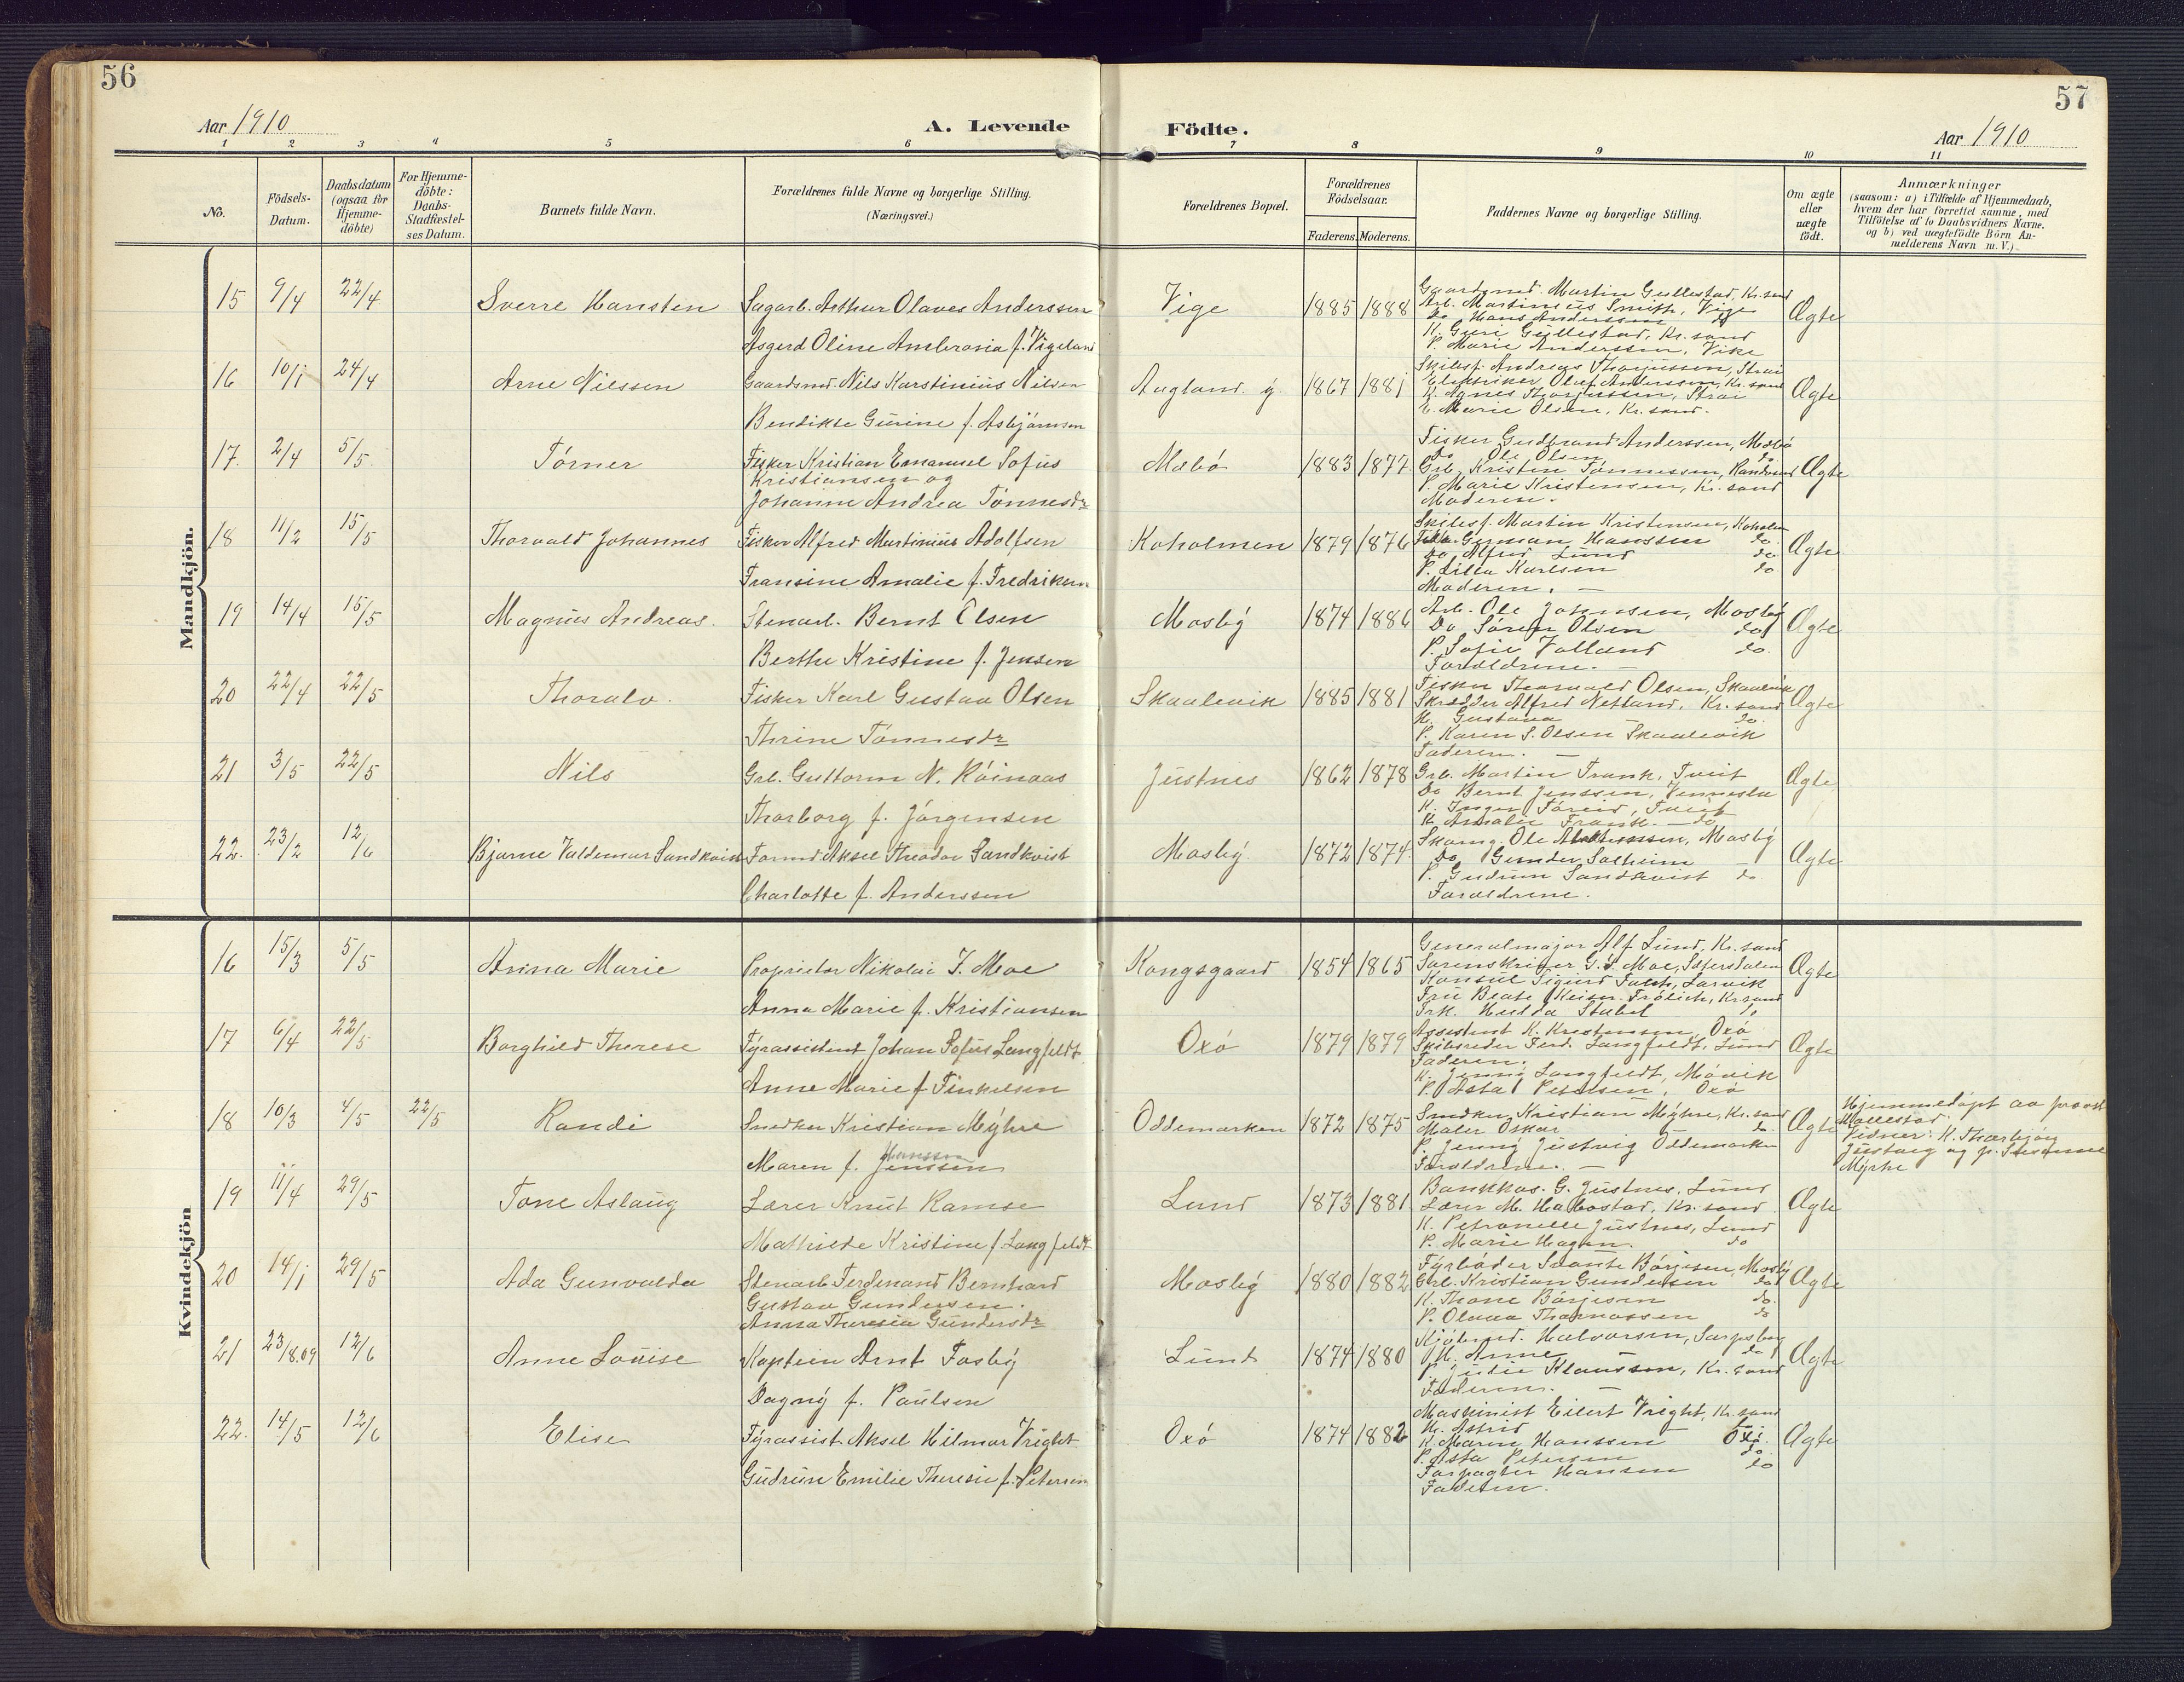 56
57
Aar 1910
A. Levende
Födte.
Aar 1910
1 2 3 4 5 6 7 8 9 10 11
No.
Födsels-
Datum.
Daabsdatum
(ogsaa for
Hjemme-
döbte)
For Hjemme-
döbte:
Daabs-
Stadfæstel-
ses Datum.
Barnets fulde Navn.
Forældrenes fulde Navne og borgerlige Stilling.
(Næringsvei.)
Forældrenes Bopæl.
Forældrenes
Födselsaar.
Faderens. Moderens.
Faddernes Navne og borgerlige Stilling.
Om ægte
eller
uægte
födt.
Anmærkninger
(saasom: a) i Tilfælde af Hjemmedaab,
hvem der har forrettet samme, med
Tilföielse af to Daabsvidners Navne.
og b) ved uægtefödte Börn An-
melderens Navn m. V.)
Mandkjön.
15 9/4 22/4 Sverre Hansten Sagarb. Arthur Olaves Anderssen
Asgerd Oline Ambrosia f. Vigeland
Vige 1885 1888
Gaardsmd. Martin Gullestad, Kr.sand
Arb. Martinius Smith, Vige
Do Hans Anderssen do
K. Guri Gullestad, Kr.sand
P. Marie Anderssen, Vike
Ægte
16 10/1 24/4 Arne Nilssen Gaardsmd. Nils Karstinius Nilsen
Bendikte Gurine f. Asbjörnsen
Augland. g. 1867 1881
Skilesf. Andreas Thorjussen, Strai
Elektriker Olaf Anderssen, Kr.sand
K. Agnes Thorjussen, Strai
E. Marie Olsen, Kr.sand.
Ægte
17. 2/4 5/5 Törner Fisker Kristian Emanuel Sofus
Kristiansen og
Johanne Andrea Tönnesdr
Mæbö 1883 1877
Fisker Gudbrand Anderssen, Mæbö
Do Ole Olsen do
Grb. Kristen Tönnessen, Randesund
P. Marie Kristensen, Kr.sand
Moderen.
Ægte
18 11/2 15/5 Thorvald Johannes Fisker Alfred Martinius Adolfsen
Fransine Amalie f. Fredriksen
Koholmen 1879 1876
Skilesf. Martin Kristensen, Koholm
Fisker German Hanssen do
Do Alfred Lund do
P. Lilla Karlsen do
Moderen. —
Ægte
19 14/4 15/5 Magnus Andreas. Stenarb. Bernt Olsen
Berthe Kristine f. Jensen
Mosby 1874 1886
Arb. Ole Johnsen, Mosby
Do Sören Olsen do
P. Sofie Volland do.
Forældrene. —
Ægte
20 22/4 22/5 Thoralv. Fisker Karl Gustav Olsen
Thrine Tönnesdr
Skaalevik 1885 1881
Fisker Thorvald Olsen, Skaalevik
Skrædder Alfred Netland, Kr.sand
K. Gustava — do.
P. Karen S. Olsen Skaalevik
Faderen. —
Ægte
21 3/5 22/5 Nils Grb. Guttorm N. Röinaas
Thorborg f. Jörgensen
Justnes 1862 1878
Grb. Martin Frank, Tveit
Do Bernt Jenssen, Vennesla
K. Inger Töreid, Tveit
K. Amalie Frank. — do
Ægte
22. 23/2 12/6 Bjarne Valdemar Sandkvist Formd. Aksel Theodor Sandkvist
Charlotte f. Anderssen
Mosby 1872 1874.
Skomg. Ole, Mosby
Do Gunder Solheim —
P. Gudrun Sandkvist do
Forældrene.
Ægte
Kvindekjön
16 15/3 5/5 Anna Marie Proprietor Nikolai J. Moe
Anna Marie f. Kristiansen
Kongsgaard 1854 1865
Generalmajor Alf. Lund, Kr.sand
Sorenskriver G. S. Moe, Sætersdalen
Konsul Sigurd Falch, Larvik
Fru Beate Frölich, Kr.sand
Frk. Hulda Stabel do
Ægte
17 6/4 22/5 Borghild Therese Fyrassistent Johan Sofus Langfeldt
Anne Marie f. Finkelsen
Oxö 1879 1879
Assistent K. Kristensen, Oxö
Skibsreder Ferd. Langfeldt, Lund
Faderen.
K. Jenny Langfeldt, Mövik
P. Asta Petersen, Oxö
Ægte
18 10/3 4/5 22/5 Randi Snedker Kristian Myhre
Hanssen
Maren f. Jenssen
Oddemarken 1872 1875
Snedker Kristian Myhre, Kr.sand
Maler Oskar — do.
P. Jenny Justvig Oddemarken
Forældrene. —
Ægte
Hjemmedöpt av provst
Mollestad
Vidner: K. Thorbjörg
Justvig og p. Susanne
Myrhe
19 11/4 29/5 Tone Aslaug Lærer Knut Ramse
Mathilde Kristine f. Langfeldt
Lund 1873 1881
Bankkas. G. Justnes, Lund
Lærer M. Habostad, Kr.sand.
K. Petronelle Justnes, Lund
P. Marie Hagen. do
Ægte
20 14/1 29/5 Ada Gunvalda Stenarb. Ferdinand Bernhard
Gustav Gundersen.
Anna Theresia Gundersdr
Mosby 1880 1882
Fyrböder Svante Börjesen, Mosby
Grb. Kristian Gundersen do
K. Thone Börjesen do.
P. Olava Thomassen do
Ægte
21 23/8.09 12/6 Anne Louise Kaptein Arnt Fosby
Dagny f. Paulsen
Lund 1874 1880
Kjöbmd. Halvorsen, Sarpsborg
K. Anne — do
P. Julie Klausson, Kr.sand
Faderen. —
Ægte
22. 14/5 12/6 Elise Fyrassist. Aksel Hilmar Vright
Gudrun Emilie Theresie f. Petersen
Oxö 1874 1882
Maskinist Eilert Vright, Kr.sand
K. Astrid — do.
K. Maren Hanssen Oxö.
P. Asta Petersen do
Forpagter Hansen do
Faderen.
Ægte